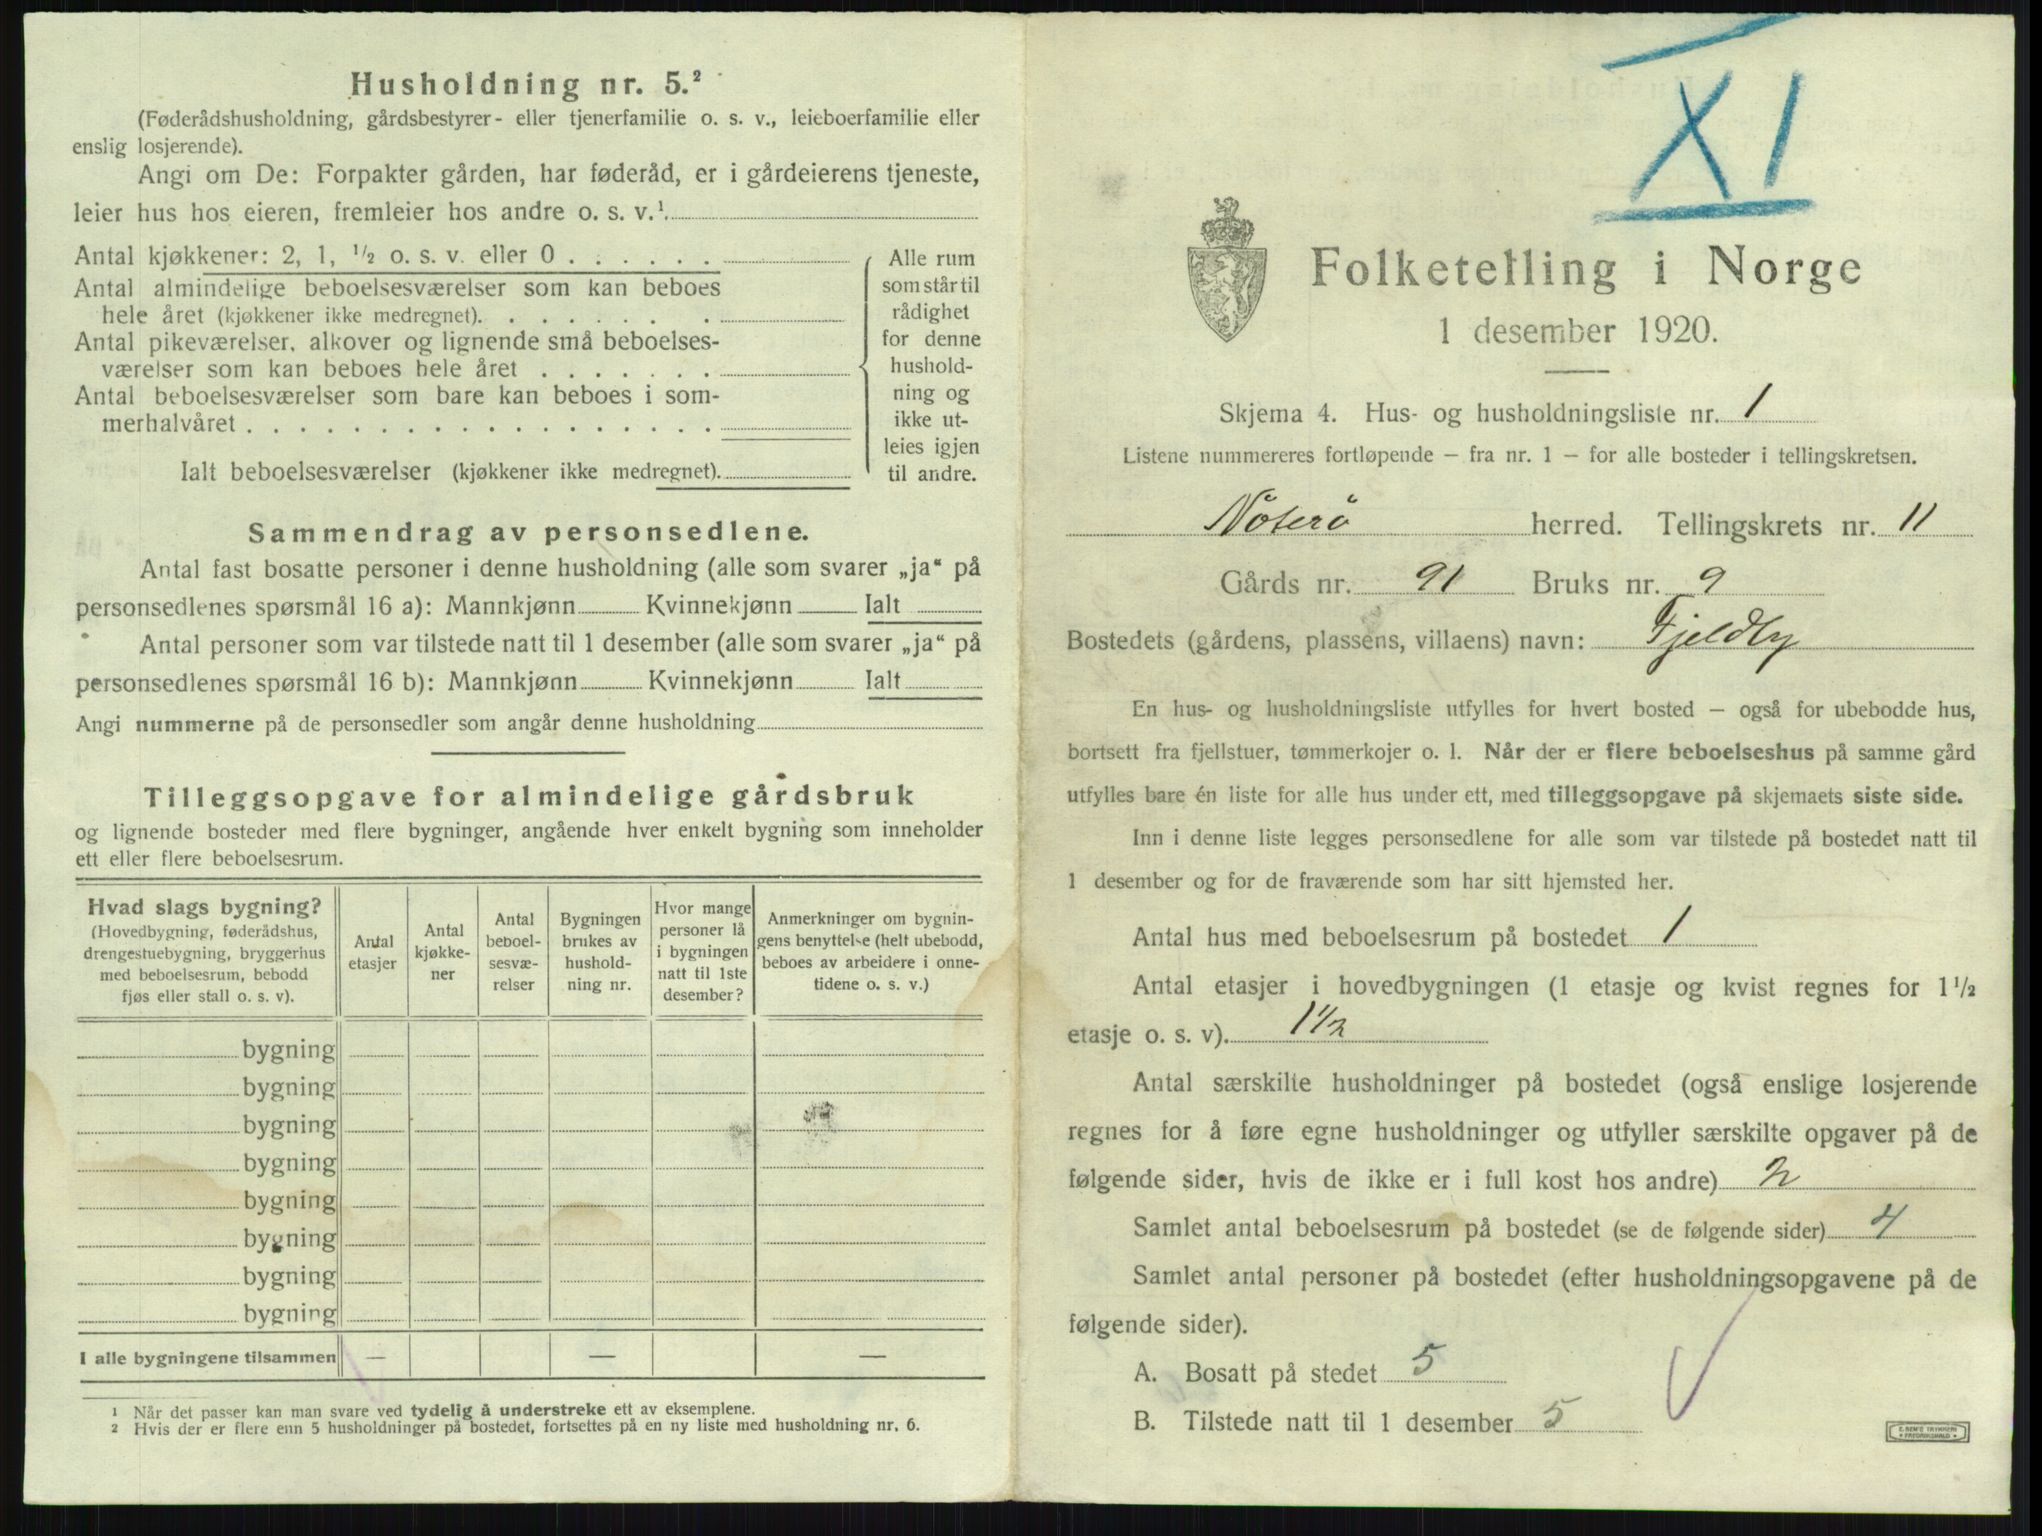 Husholdning nr. 5.²
(Føderådshusholdning, gårdsbestyrer- eller tjenerfamilie o. s. v., leieboerfamilie eller
enslig losjerende).
Angi om De: Forpakter gården, har føderåd, er i gårdeierens tjeneste,
leier hus hos eieren, fremleier hos andre o. s. v.¹
Antal kjøkkener: 2, 1, ½ o. s. v. eller 0
Antal almindelige beboelsesværelser som kan beboes
hele året (kjøkkener ikke medregnet).
Antal pikeværelser, alkover og lignende små beboelses-
værelser som kan beboes hele året
Antal beboelsesværelser som bare kan beboes i som-
merhalvåret
Ialt beboelsesværelser (kjøkkener ikke medregnet).
Alle rum
som står til
rådighet
for denne
hushold-
ning og
ikke ut-
leies igjen
til andre.
Sammendrag av personsedlene.
Antal fast bosatte personer i denne husholdning (alle som svarer „ja“ på
personsedlenes spørsmål 16 a): Mannkjønn Kvinnekjønn Ialt
Antal personer som var tilstede natt til 1 desember (alle som svarer „ja“ på
personsedlenes spørsmål 16 b): Mannkjønn Kvinnekjønn Ialt
Angi nummerne på de personsedler som angår denne husholdning
Tilleggsopgave for almindelige gårdsbruk
og lignende bosteder med flere bygninger, angående hver enkelt bygning som inneholder
ett eller flere beboelsesrum.
Hvad slags bygning?
(Hovedbygning, føderådshus,
drengestuebygning, bryggerhus
med beboelsesrum, bebodd
fjøs eller stall o. s. v).
Antal
etasjer
Antal
kjøkke-
ner
Antal
beboel-
sesvæ-
relser
Bygningen
brukes av
hushold-
ning nr.
Hvor mange
personer lå
i bygningen
natt til 1ste
desember?
Anmerkninger om bygnin-
gens benyttelse (helt ubebodd,
beboes av arbeidere i onne-
tidene o. s. v.)
bygning
bygning
bygning
bygning
bygning
bygning
bygning
bygning
I alle bygningene tilsammen — — —
¹ Når det passer kan man svare ved tydelig å understreke ett av eksemplene.
² Hvis der er flere enn 5 husholdninger på bostedet, fortsettes på en ny liste med husholdning nr. 6.
XI
Folketelling i Norge
1 desember 1920.
Skjema 4. Hus- og husholdningsliste nr. 1
Listene nummereres fortløpende – fra nr. 1 – for alle bosteder i tellingskretsen.
Nøterø herred. Tellingskrets nr. 11
Gårds nr. 91 Bruks nr. 9
Bostedets (gårdens, plassens, villaens) navn: Fjeldby
En hus- og husholdningsliste utfylles for hvert bosted – også for ubebodde hus,
bortsett fra fjellstuer, tømmerkojer o. l. Når der er flere beboelseshus på samme gård
utfylles bare én liste for alle hus under ett, med tilleggsopgave på skjemaets siste side.
Inn i denne liste legges personsedlene for alle som var tilstede på bostedet natt til
1 desember og for de fraværende som har sitt hjemsted her.
Antal hus med beboelsesrum på bostedet 1
Antal etasjer i hovedbygningen (1 etasje og kvist regnes for 1½
etasje o. s. v). 1½
Antal særskilte husholdninger på bostedet (også enslige losjerende
regnes for å føre egne husholdninger og utfyller særskilte opgaver på de
følgende sider, hvis de ikke er i full kost hos andre) 2
Samlet antal beboelsesrum på bostedet (se de følgende sider) 4
Samlet antal personer på bostedet (efter husholdningsopgavene på de
følgende sider).
A. Bosatt på stedet 5
B. Tilstede natt til 1 desember 5